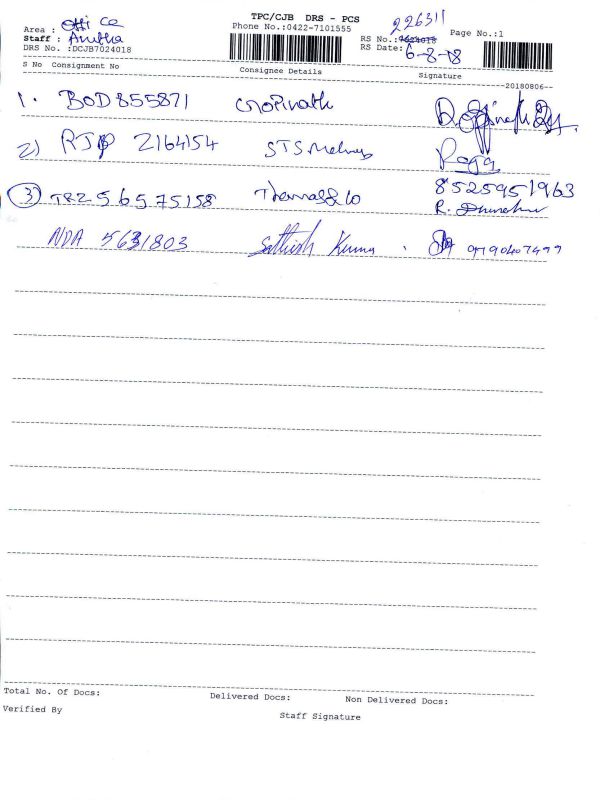 TPC/CJB DRS - PCS
Area : Office
Phone No.:0422-7101555
226311
Page No.:1
Staff : Anitha
RS No.:7024018
DRS No. :DCJB7024018
RS Date: 6-8-18
S No Consignment No Consignee Details Signature
--20180806--
1. BOD855871 Gopinath
2) RJP 2164154 STS
3) TRZ 56575158 Thomas & Co 8525951963
NDA 5631803 Sathish Kumar
Total No. Of Docs: Delivered Docs: Non Delivered Docs:
Verified By Staff Signature